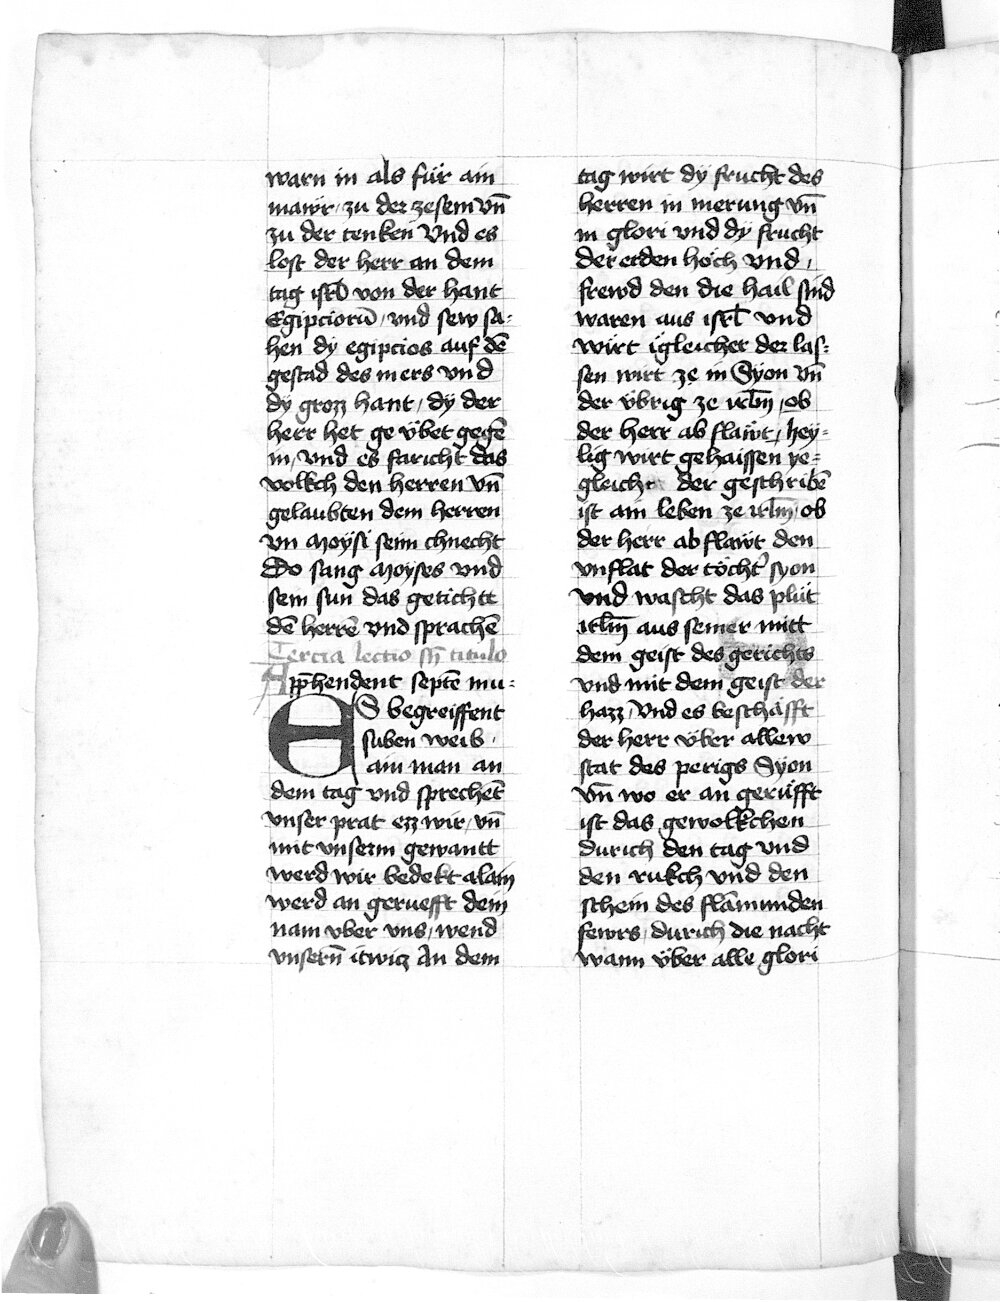 warn in als für ain
mawr / zu der zesem vn̄
zu der tenken Vnd es
lost der herr an dem
tag isrl̄ von der hant
Egipciorū / vnd sew sa⸗
hen dy egipcios auf dē
gestad des mers vnd
dy grozz hant / dy der
herr het ge vbet gegē
in / vnd es faricht das
volkch den herren vn̄
gelaubten dem herren
vn Moysi seim chnecht
Do sang Moyses vnd
sein sun das getichtt
dē herrē vnd sprachē
Tercia lectio sn̄ titulo
App̄hendent septē mu⸗
ES begreiffent
siben weib ·
ain man an
dem tag vnd sprechēt
vnser prat ezz wir / vn̄
mit vnserm gewantt
werd wir bedekt alain
werd an geruefft dein
nam vber vns / wend
vnsern̄ itwiz An dem
tag wirt dy frucht des
herren in merung vn̄
in glori vnd dy frucht
der erden hoch vnd /
frewd den die hail sind
waren aus isrl̄ vnd
wirt igleicher der las⸗
sen wirt ze in Syon vn̄
der vbrig ze irlm̄ / ob
der herr ab flawt / hey⸗
lig wirt gehaissen ye⸗
gleicher der geschribē
ist ain leben ze irlm̄ / ob
der herr ab flawt den
vnflat der tocht̓ syon
vnd wascht das plut
irlm̄ aus seiner mitt
dem geist des gerichts
vnd mit dem geist der
hazz / Vnd es beschafft
der herr vber allew
stat des perigs Syon
vn̄ wo er an gerufft
ist das gewolkchen
durich den tag vnd
den rukch vnd den
schein des flāmunden
fewrs / durich die nacht
wann vber alle glori